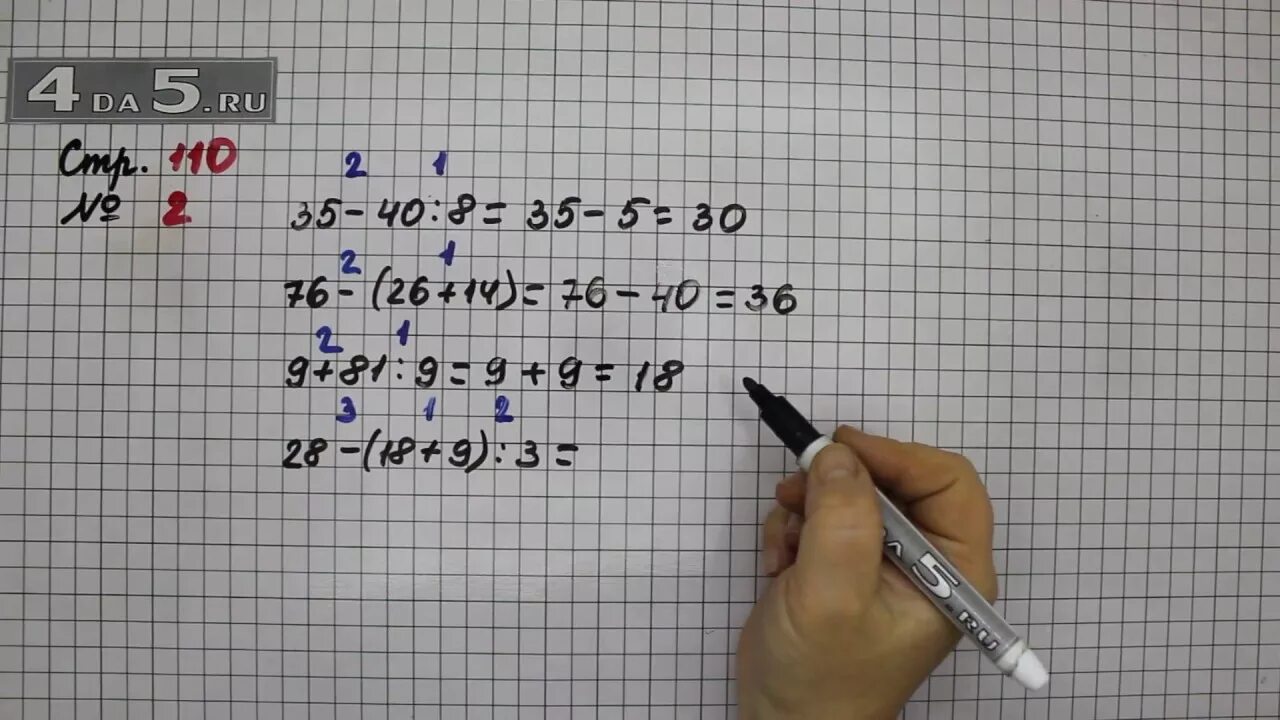 4DA5.RU
Стр. 110
№ 2
2 1
35 - 40 : 8 = 35 - 5 = 30
2 1
76 - (26 + 14) = 76 - 40 = 36
2 1
9 + 81 : 9 = 9 + 9 = 18
3 1 2
28 - (18 + 9) : 3 =
DA 5.RU